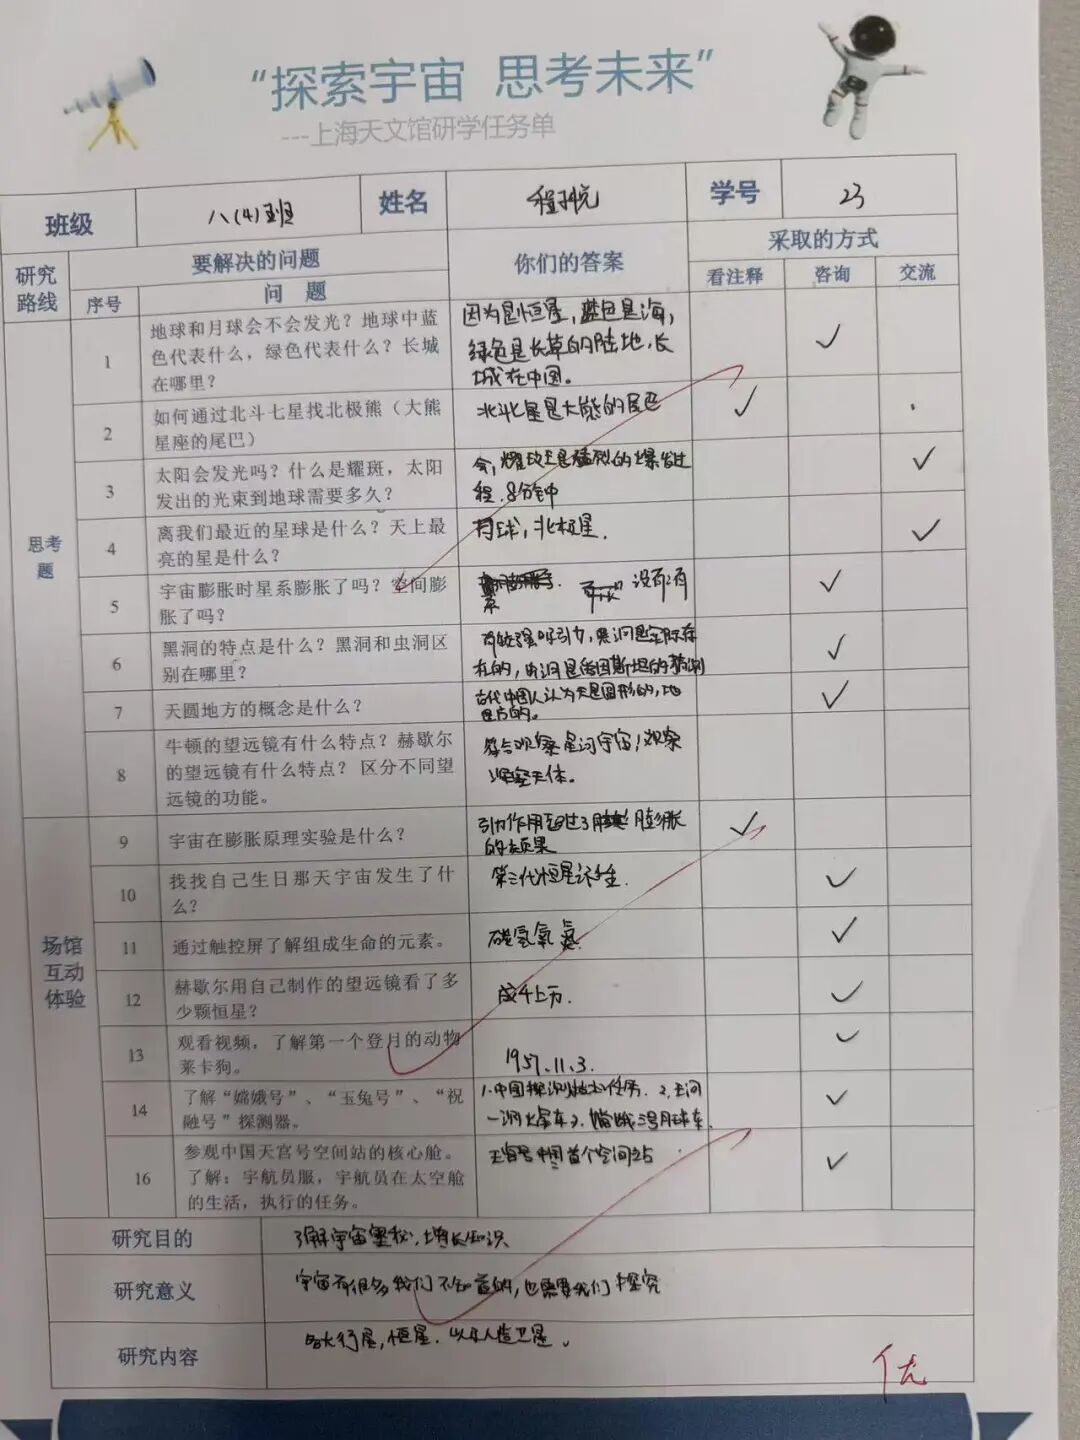 “探索宇宙 思考未来”
---上海天文馆研学任务单
班级 八(4)班 姓名 学号 23
研究路线 要解决的问题 你们的答案 采取的方式
序号 问 题 看注释 咨询 交流
思考题
1 地球和月球会不会发光？地球中蓝
色代表什么，绿色代表什么？长城
在哪里？
因为是恒星，蓝色是海，
绿色是长草的陆地，长
城在中国。
✓
2 如何通过北斗七星找北极熊（大熊
星座的尾巴）
北斗七星是大熊的尾巴
✓
3 太阳会发光吗？什么是耀斑，太阳
发出的光束到地球需要多久？
会，耀斑是猛烈的爆发过
程.8分钟
✓
4 离我们最近的星球是什么？天上最
亮的星是什么？
月球，北极星.
✓
5 宇宙膨胀时星系膨胀了吗？空间膨
胀了吗？
没有 有
✓
6 黑洞的特点是什么？黑洞和虫洞区
别在哪里？
有较强吸引力，黑洞是实际存
在的，虫洞是爱因斯坦的猜测
✓
7 天圆地方的概念是什么？
古代中国人认为天是圆形的，地
是方的。
✓
8 牛顿的望远镜有什么特点？赫歇尔
的望远镜有什么特点？ 区分不同望
远镜的功能。
观察星河宇宙！观察
深空天体。
场馆互动体验
9 宇宙在膨胀原理实验是什么？
引力作用超过了膨胀
的结果
✓
10 找找自己生日那天宇宙发生了什
么？
第三代恒星诞生.
✓
11 通过触控屏了解组成生命的元素。
碳氢氧氮
✓
12 赫歇尔用自己制作的望远镜看了多
少颗恒星？
成千上万.
✓
13 观看视频，了解第一个登月的动物
莱卡狗。
1957.11.3.
✓
14 了解“嫦娥号”、“玉兔号”、“祝
融号”探测器。
1.中国探测 任务. 2.天问
一号火星车3.嫦娥三号月球车.
✓
16 参观中国天宫号空间站的核心舱。
了解：宇航员服，宇航员在太空舱
的生活，执行的任务。
天宫号中国首个空间站
✓
研究目的 了解宇宙奥秘，增长知识
研究意义 宇宙有很多我们不知道的，也需要我们探究
研究内容 各大行星，恒星. 以及人造卫星。
优